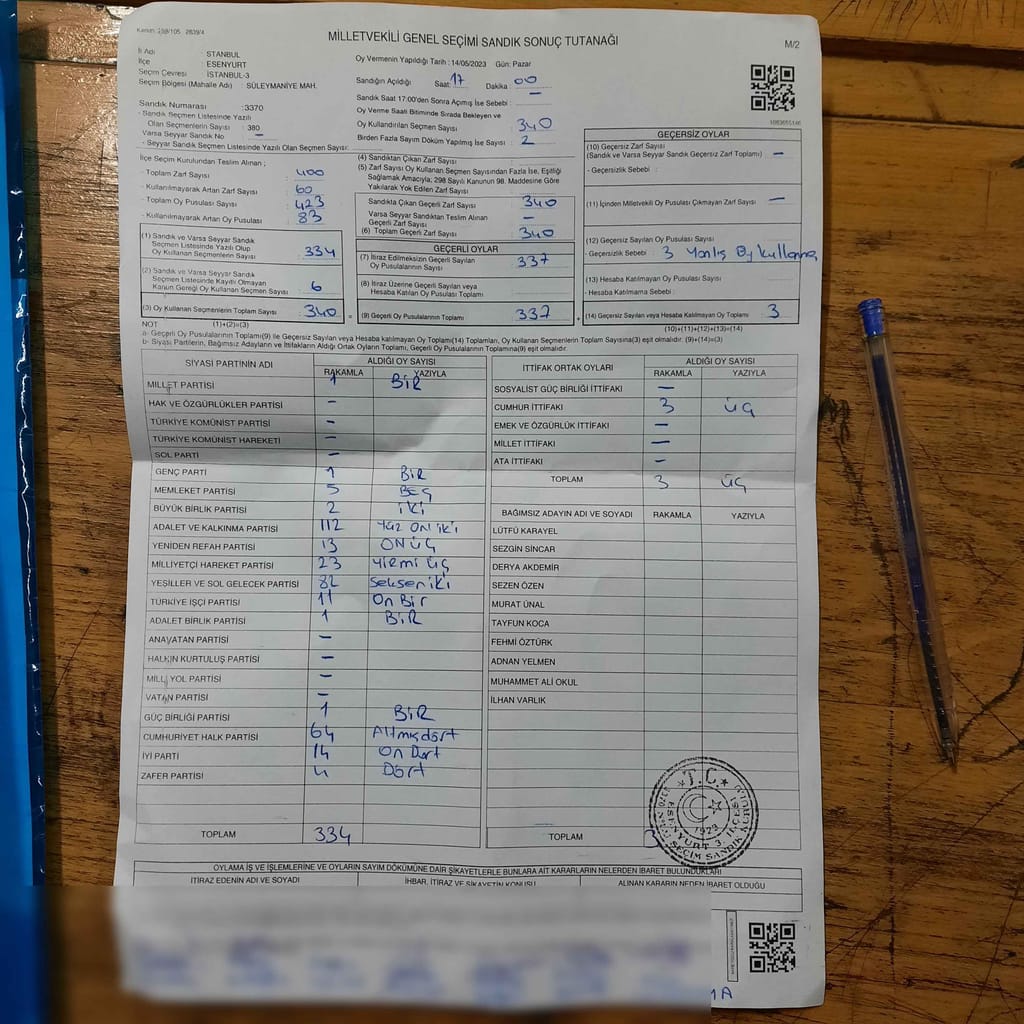 Kanun: 298/105 2839/4
MİLLETVEKİLİ GENEL SEÇİMİ SANDIK SONUÇ TUTANAĞI
M/2
İl Adı : İSTANBUL
İlçe : ESENYURT
Seçim Çevresi : İSTANBUL-3
Seçim Bölgesi (Mahalle Adı) SÜLEYMANİYE MAH.
Sandık Numarası : 3370
- Sandık Seçmen Listesinde Yazılı
Olan Seçmenlerin Sayısı : 380
Varsa Seyyar Sandık No –
- Seyyar Sandık Seçmen Listesinde Yazılı Olan Seçmen Sayısı:
Oy Vermenin Yapıldığı Tarih : 14/05/2023 Gün: Pazar
Sandığın Açıldığı Saat: 17 Dakika 00
Sandık Saat 17:00'den Sonra Açımış İse Sebebi : –
Oy Verme Saati Bitiminde Sırada Bekleyen ve
Oy Kullandırılan Seçmen Sayısı 340
Birden Fazla Sayım Döküm Yapılmış İse Sayısı : 2
İlçe Seçim Kurulundan Teslim Alınan ;
- Toplam Zarf Sayısı 400
- Kullanılmayarak Artan Zarf Sayısı 60
- Toplam Oy Pusulası Sayısı 423
- Kullanılmayarak Artan Oy Pusulası 83
(1) Sandık ve Varsa Seyyar Sandık
Seçmen Listesinde Yazılı Olup
Oy Kullanan Seçmenlerin Sayısı 334
(2) Sandık ve Varsa Seyyar Sandık
Seçmen Listesinde Kayıtlı Olmayan
Kanun Gereği Oy Kullanan Seçmen Sayısı 6
(3) Oy Kullanan Seçmenlerin Toplam Sayısı 340
(4) Sandıktan Çıkan Zarf Sayısı
(5) Zarf Sayısı Oy Kullanan Seçmen Sayısından Fazla İse, Eşitliği
Sağlamak Amacıyla; 298 Sayılı Kanunun 98. Maddesine Göre
Yakılarak Yok Edilen Zarf Sayısı
Sandıkta Çıkan Geçerli Zarf Sayısı 340
Varsa Seyyar Sandıktan Teslim Alınan
Geçerli Zarf Sayısı –
(6) Toplam Geçerli Zarf Sayısı 340
GEÇERLİ OYLAR
(7) İtiraz Edilmeksizin Geçerli Sayılan
Oy Pusulalarının Sayısı 337
(8) İtiraz Üzerine Geçerli Sayılan veya
Hesaba Katılan Oy Pusulası Toplamı
= (9) Geçerli Oy Pusulalarının Toplamı 337
GEÇERSİZ OYLAR
(10) Geçersiz Zarf Sayısı
(Sandık ve Varsa Seyyar Sandık Geçersiz Zarf Toplamı) –
- Geçersizlik Sebebi :
(11) İçinden Milletvekili Oy Pusulası Çıkmayan Zarf Sayısı –
(12) Geçersiz Sayılan Oy Pusulası Sayısı
- Geçersizlik Sebebi : 3 Yanlış Oy kullanma
(13) Hesaba Katılmayan Oy Pusulası Sayısı
- Hesaba Katılmama Sebebi :
+ (14) Geçersiz Sayılan veya Hesaba Katılmayan Oy Toplamı 3
NOT (1)+(2)=(3) (10)+(11)+(12)+(13)=(14)
a- Geçerli Oy Pusulalarının Toplamı(9) ile Geçersiz Sayılan veya Hesaba Katılmayan Oy Toplamı(14) Toplamları, Oy Kullanan Seçmenlerin Toplam Sayısına(3) eşit olmalıdır. (9)+(14)=(3)
b- Siyasi Partilerin, Bağımsız Adayların ve İttifakların Aldığı Ortak Oyların Toplamı, Geçerli Oy Pusulalarının Toplamına(9) eşit olmalıdır.
SİYASİ PARTİNİN ADI ALDIĞI OY SAYISI
RAKAMLA YAZIYLA
MİLLET PARTİSİ 1 BİR
HAK VE ÖZGÜRLÜKLER PARTİSİ –
TÜRKİYE KOMÜNİST PARTİSİ –
TÜRKİYE KOMÜNİST HAREKETİ –
SOL PARTİ –
GENÇ PARTİ 1 BİR
MEMLEKET PARTİSİ 5 BEŞ
BÜYÜK BİRLİK PARTİSİ 2 iKİ
ADALET VE KALKINMA PARTİSİ 112 Yüz ON iki
YENİDEN REFAH PARTİSİ 13 ONÜÇ
MİLLİYETÇİ HAREKET PARTİSİ 23 yirmi üç
YEŞİLLER VE SOL GELECEK PARTİSİ 82 Seksen iki
TÜRKİYE İŞÇİ PARTİSİ 11 On Bir
ADALET BİRLİK PARTİSİ 1 BİR
ANAVATAN PARTİSİ –
HALKIN KURTULUŞ PARTİSİ –
MİLLİ YOL PARTİSİ –
VATAN PARTİSİ –
GÜÇ BİRLİĞİ PARTİSİ 1 BİR
CUMHURİYET HALK PARTİSİ 64 Altmışdört
İYİ PARTİ 14 On Dört
ZAFER PARTİSİ 4 Dört
TOPLAM 334
İTTİFAK ORTAK OYLARI ALDIĞI OY SAYISI
RAKAMLA YAZIYLA
SOSYALİST GÜÇ BİRLİĞİ İTTİFAKI –
CUMHUR İTTİFAKI 3 üç
EMEK VE ÖZGÜRLÜK İTTİFAKI –
MİLLET İTTİFAKI –
ATA İTTİFAKI –
TOPLAM 3 üç
BAĞIMSIZ ADAYIN ADI VE SOYADI RAKAMLA YAZIYLA
LÜTFÜ KARAYEL
SEZGİN SİNCAR
DERYA AKDEMİR
SEZEN ÖZEN
MURAT ÜNAL
TAYFUN KOCA
FEHMİ ÖZTÜRK
ADNAN YELMEN
MUHAMMET ALİ OKUL
İLHAN VARLIK
TOPLAM
T.C.
1923
OYLAMA İŞ VE İŞLEMLERİNE VE OYLARIN SAYIM DÖKÜMÜNE DAİR ŞİKAYETLERLE BUNLARA AİT KARARLARIN NELERDEN İBARET BULUNDUKLARI
İTİRAZ EDENİN ADI VE SOYADI İHBAR, İTİRAZ VE ŞİKAYETİN KONUSU ALINAN KARARIN NEDEN İBARET OLDUĞU